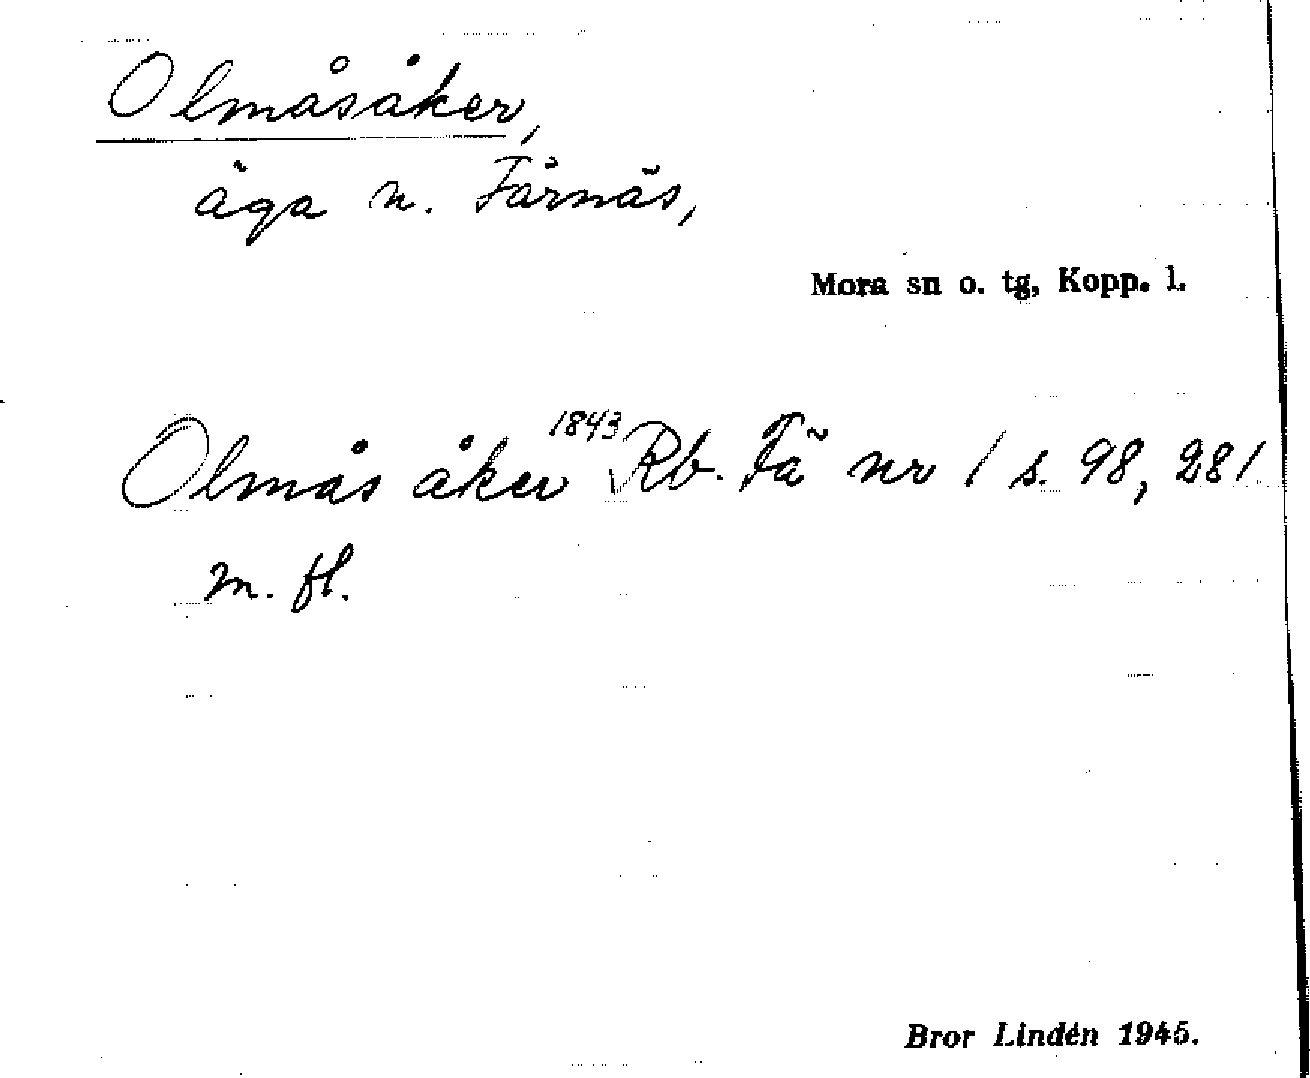 Olmåsåker,
äga n. Färnäs,
Mora sn o. tg, Kopp. l.
Olmås åker 1843 Rb. Fä nr 1 s. 98, 281
m. fl.
Bror Lindén 1945.